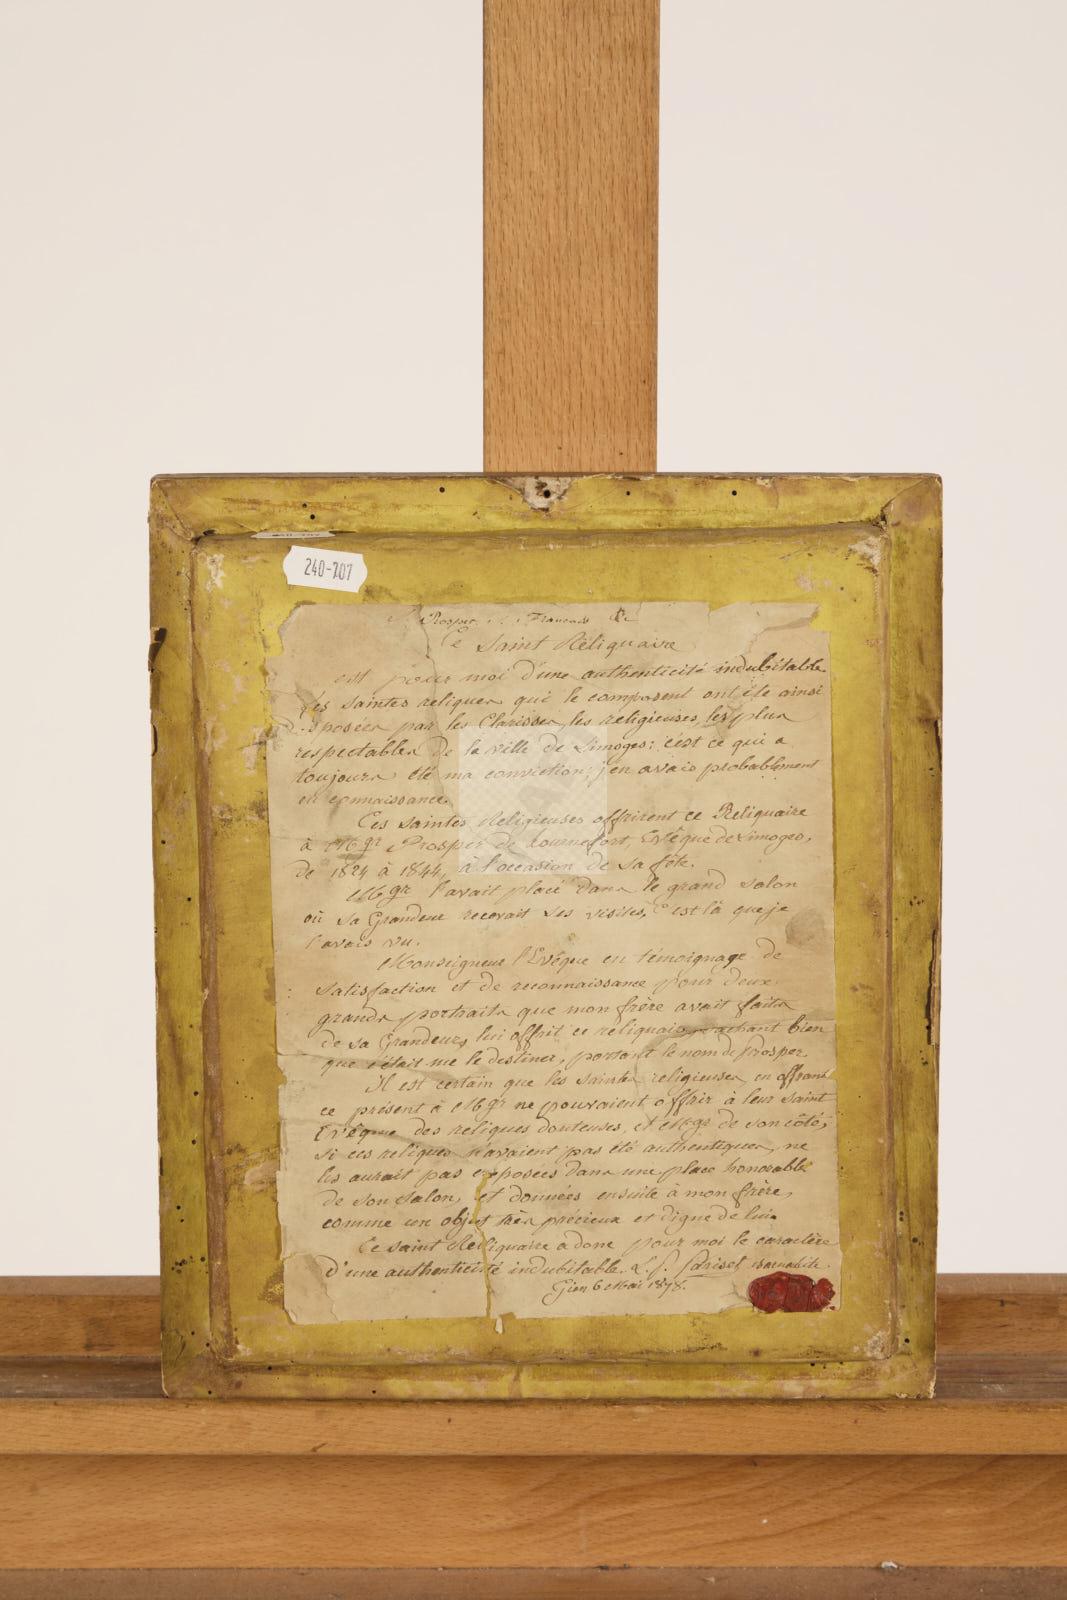 240-707
Prosper Francois
Ce Saint Réliquaire
est pour moi d'une authenticité indubitable
Les saintes reliques qui le composent ont été ainsi
disposées par les Clarisses, les religieuses, les plus
respectables de la ville de Limoges: c'est ce qui a
toujours été ma conviction; j'en avais probablement
eu connaissance.
Ces saintes Religieuses offrirent ce Reliquaire
à Mgr Prosper de Tournefort, Evêque de Limoges,
De 1824 à 1844, à l'occasion de sa fête.
Mgr l'avait placé dans le grand salon
où sa Grandeur recevait ses visites, C'est là que je
l'avais vu.
Monseigneur l'Evêque en témoignage de
satisfaction et de reconnaissance pour deux
grands portraits que mon frère avait faits
de sa Grandeur, lui offrit ce reliquaire sachant bien
que c'était me le destiner, portant le nom de Prosper.
Il est certain que les saintes religieuses, en offrant
ce présent à Mgr ne pouvaient offrir à leur saint
Evêque des reliques douteuses, et Mgr de son côté,
si ces reliques n'avaient pas été authentiques, ne
les aurait pas exposées dans une place honorable
de son salon, et données ensuite à mon frère,
comme un objet très précieux et digne de lui.
Ce saint Reliquaire a donc pour moi le caractère
d'une authenticité indubitable.
Gien 6 Mai 1878.